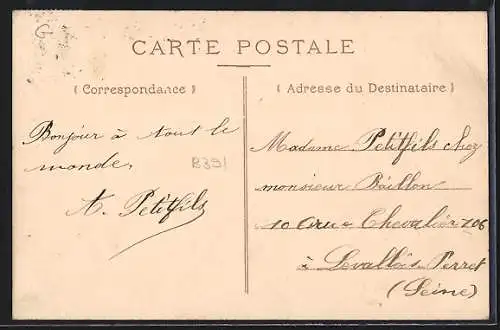 CARTE POSTALE
( Correspondance )
( Adresse du Destinataire )
Bonjour à tout le
monde,
A. Petitfils
B391
Madame Petitfils chez
monsieur Baillon
10 Chevalier 106
à Levallois-Perret
(Seine)